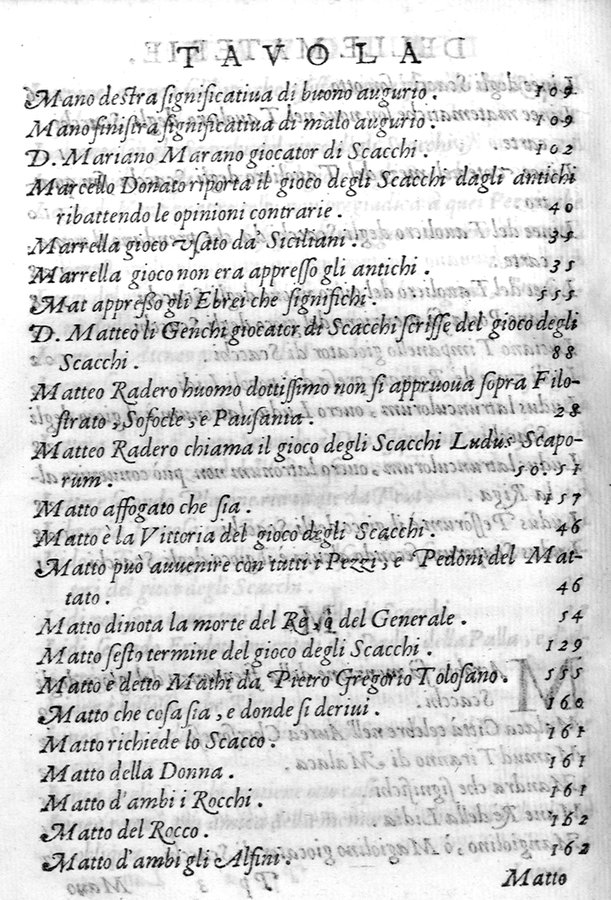 TAVOLA
Mano destra significatiua di buono augurio. 109
Mano sinistra significatiua di malo augurio. 109
D. Mariano Marano giocator di Scacchi. 102
Marcello Donato riporta il gioco degli Scacchi dagli antichi
ribattendo le opinioni contrarie. 40
Marrella gioco vsato da Siciliani. 35
Marrella gioco non era appresso gli antichi. 35
Mat appresso gli Ebrei che significhi. 555
D. Matteo li Genchi giocator di Scacchi scrisse del gioco degli
Scacchi. 88
Matteo Radero huomo dottissimo non si appruoua sopra Filo-
strato, Sofocle, e Pausania. 28
Matteo Radero chiama il gioco degli Scacchi Ludus Scapo-
rum. 50. 51
Matto affogato che sia. 157
Matto è la Vittoria del gioco degli Scacchi. 46
Matto può auuenire con tutti i Pezzi, e Pedoni del Mat-
tato. 46
Matto dinota la morte del Re, o del Generale. 54
Matto sesto termine del gioco degli Scacchi. 129
Matto è detto Mathi da Pietro Gregorio Tolosano. 555
Matto che cosa sia, e donde si deriui. 160
Matto richiede lo Scacco. 161
Matto della Donna. 161
Matto d'ambi i Rocchi. 161
Matto del Rocco. 162
Matto d'ambi gli Alfini. 162
Matto